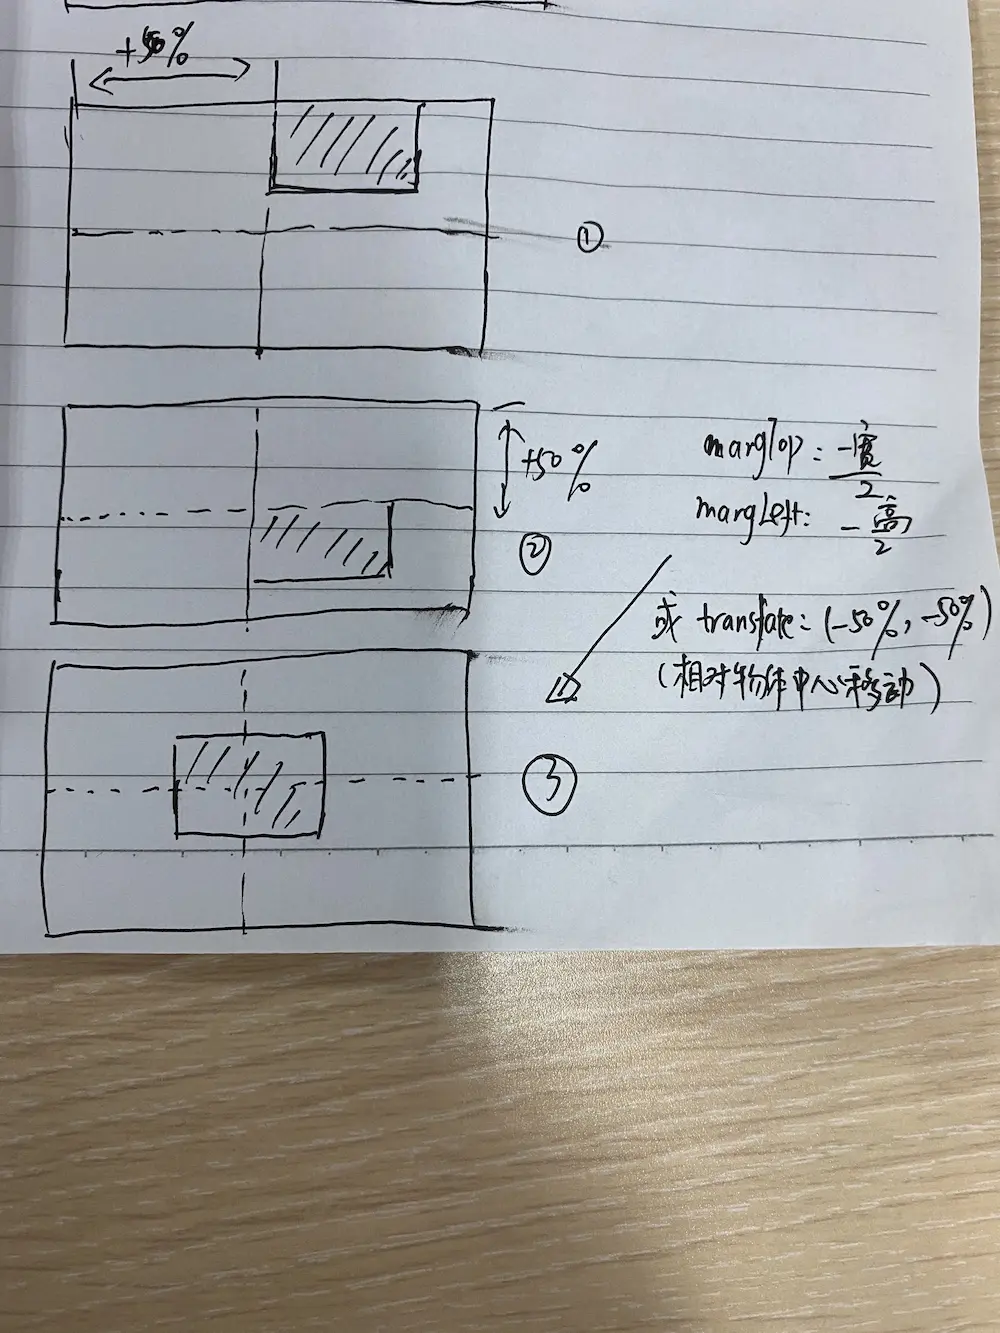 +50%
①
+50%
②
margTop: -宽/2
margLeft: -高/2
或 translate: (-50%, -50%)
(相对物体中心移动)
③